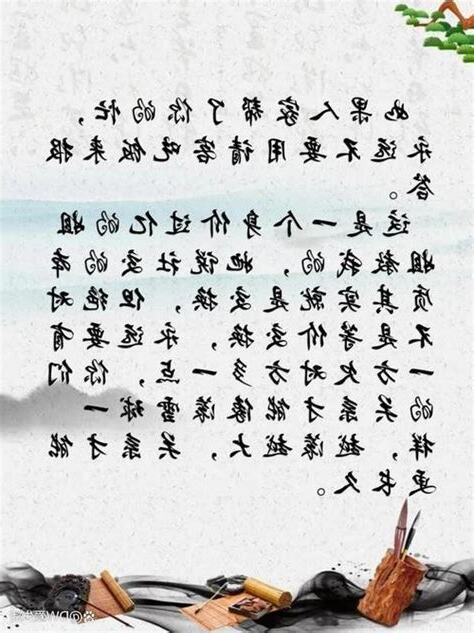 如果人家帮了你的忙，
永远不要用请客吃饭来报
答。
这是一个身价过亿的姐
姐教我的，她说社交的本
质其实就是交换，但绝对
不是等价交换，永远要有
一方欠对方多一点，你们
的关系才能像滚雪球一
样，越滚越大，关系才能
更长久。